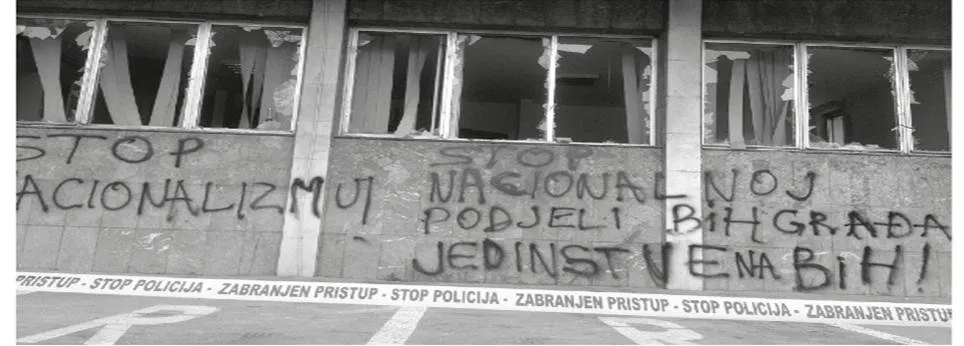 STOP
ACIONALIZMU!
STOP
NACIONALNOJ
PODJELI BiH GRAĐANA
JEDINSTVENA BiH!
PRISTUP - STOP POLICIJA - ZABRANJEN PRISTUP - STOP POLICIJA - ZABRANJEN PRISTUP - STOP POLICIJA - ZABRANJEN PRISTUP